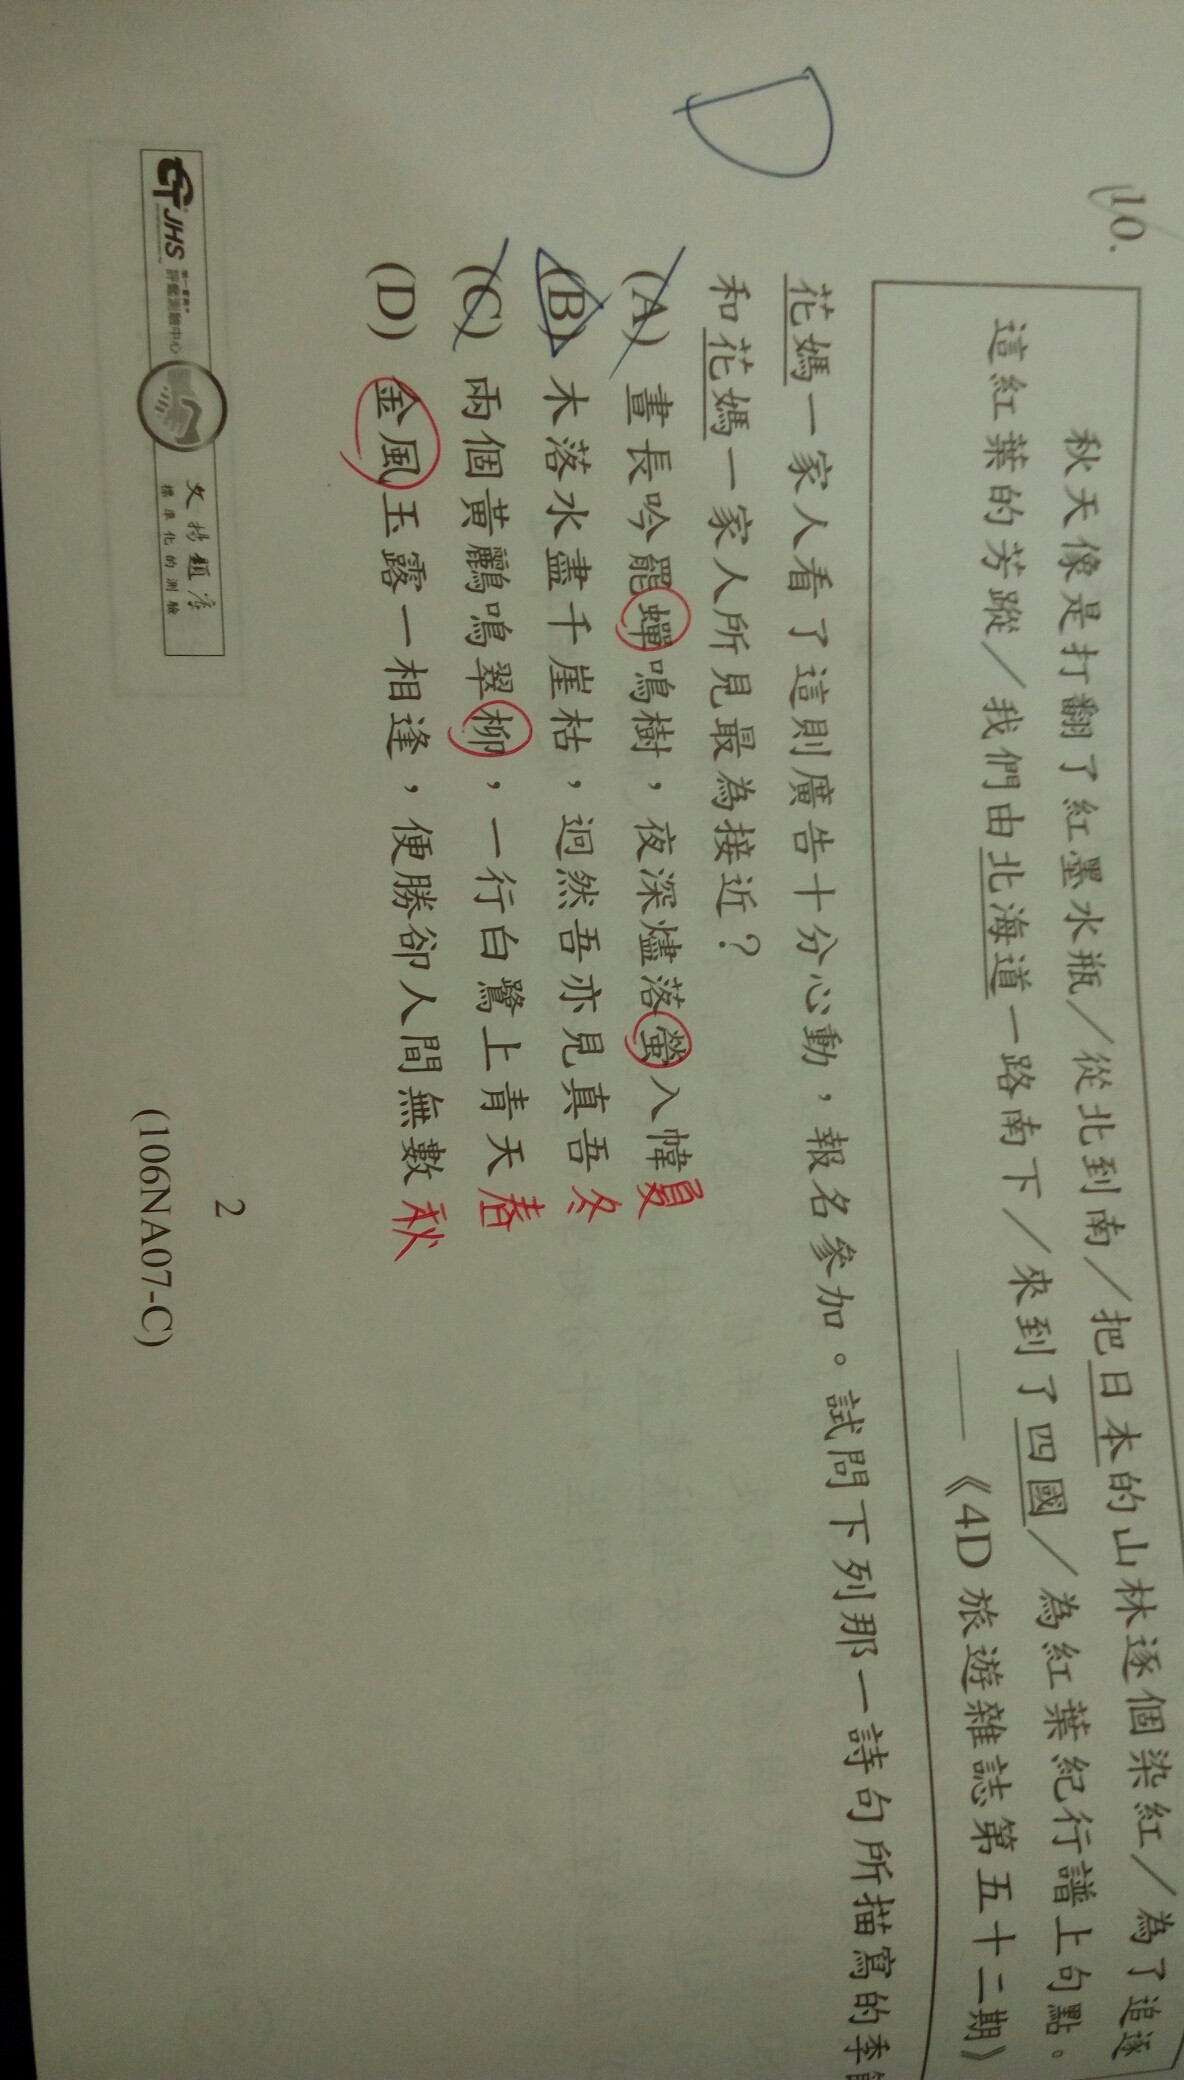 D
10.
秋天像是打翻了紅墨水瓶／從北到南／把日本的山林逐個染紅／為了追逐
這紅葉的芳蹤／我們由北海道一路南下／來到了四國／為紅葉紀行譜上句點。
——《4D旅遊雜誌第五十二期》
花媽一家人看了這則廣告十分心動，報名參加。試問下列那一詩句所描寫的季
和花媽一家人所見最為接近？
(A) 晝長吟罷蟬鳴樹，夜深燼落螢入幃 夏
(B) 木落水盡千崖枯，迥然吾亦見真吾 冬
(C) 兩個黃鸝鳴翠柳，一行白鷺上青天 春
(D) 金風玉露一相逢，便勝卻人間無數 秋
2
(106NA07-C)
JHS 評鑑測驗中心
文揚題庫
標準化的測驗